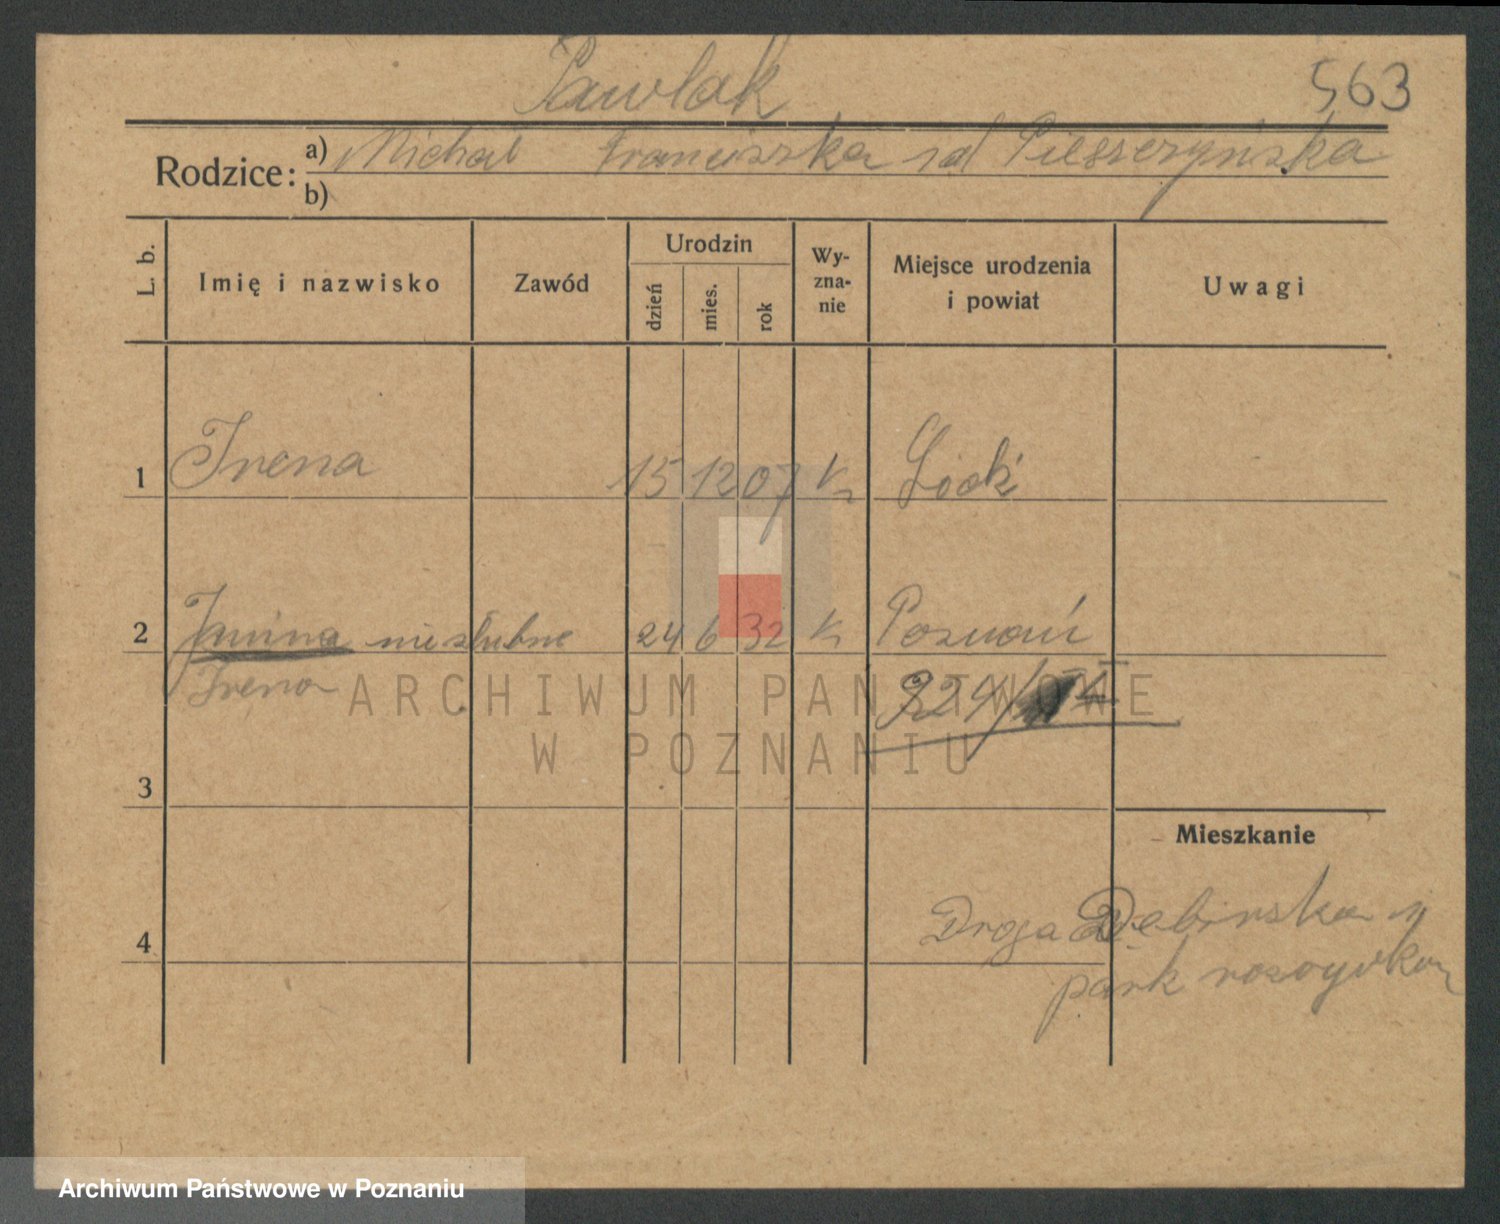 Pawlak
563
Rodzice:
a) Michał Franciszka zd Pieszczyńska
b)
L. b.
Imię i nazwisko
Zawód
Urodzin
dzień
mies.
rok
Wy-
zna-
nie
Miejsce urodzenia
i powiat
Uwagi
1 Irena 15 12 07 K Łódź
2 Janina nieślubne 24 6 32 K Poznań
Irena 224/
3
Mieszkanie
4 Droga Dębińska
park
ARCHIWUM PAŃSTWOWE
W POZNANIU
Archiwum Państwowe w Poznaniu